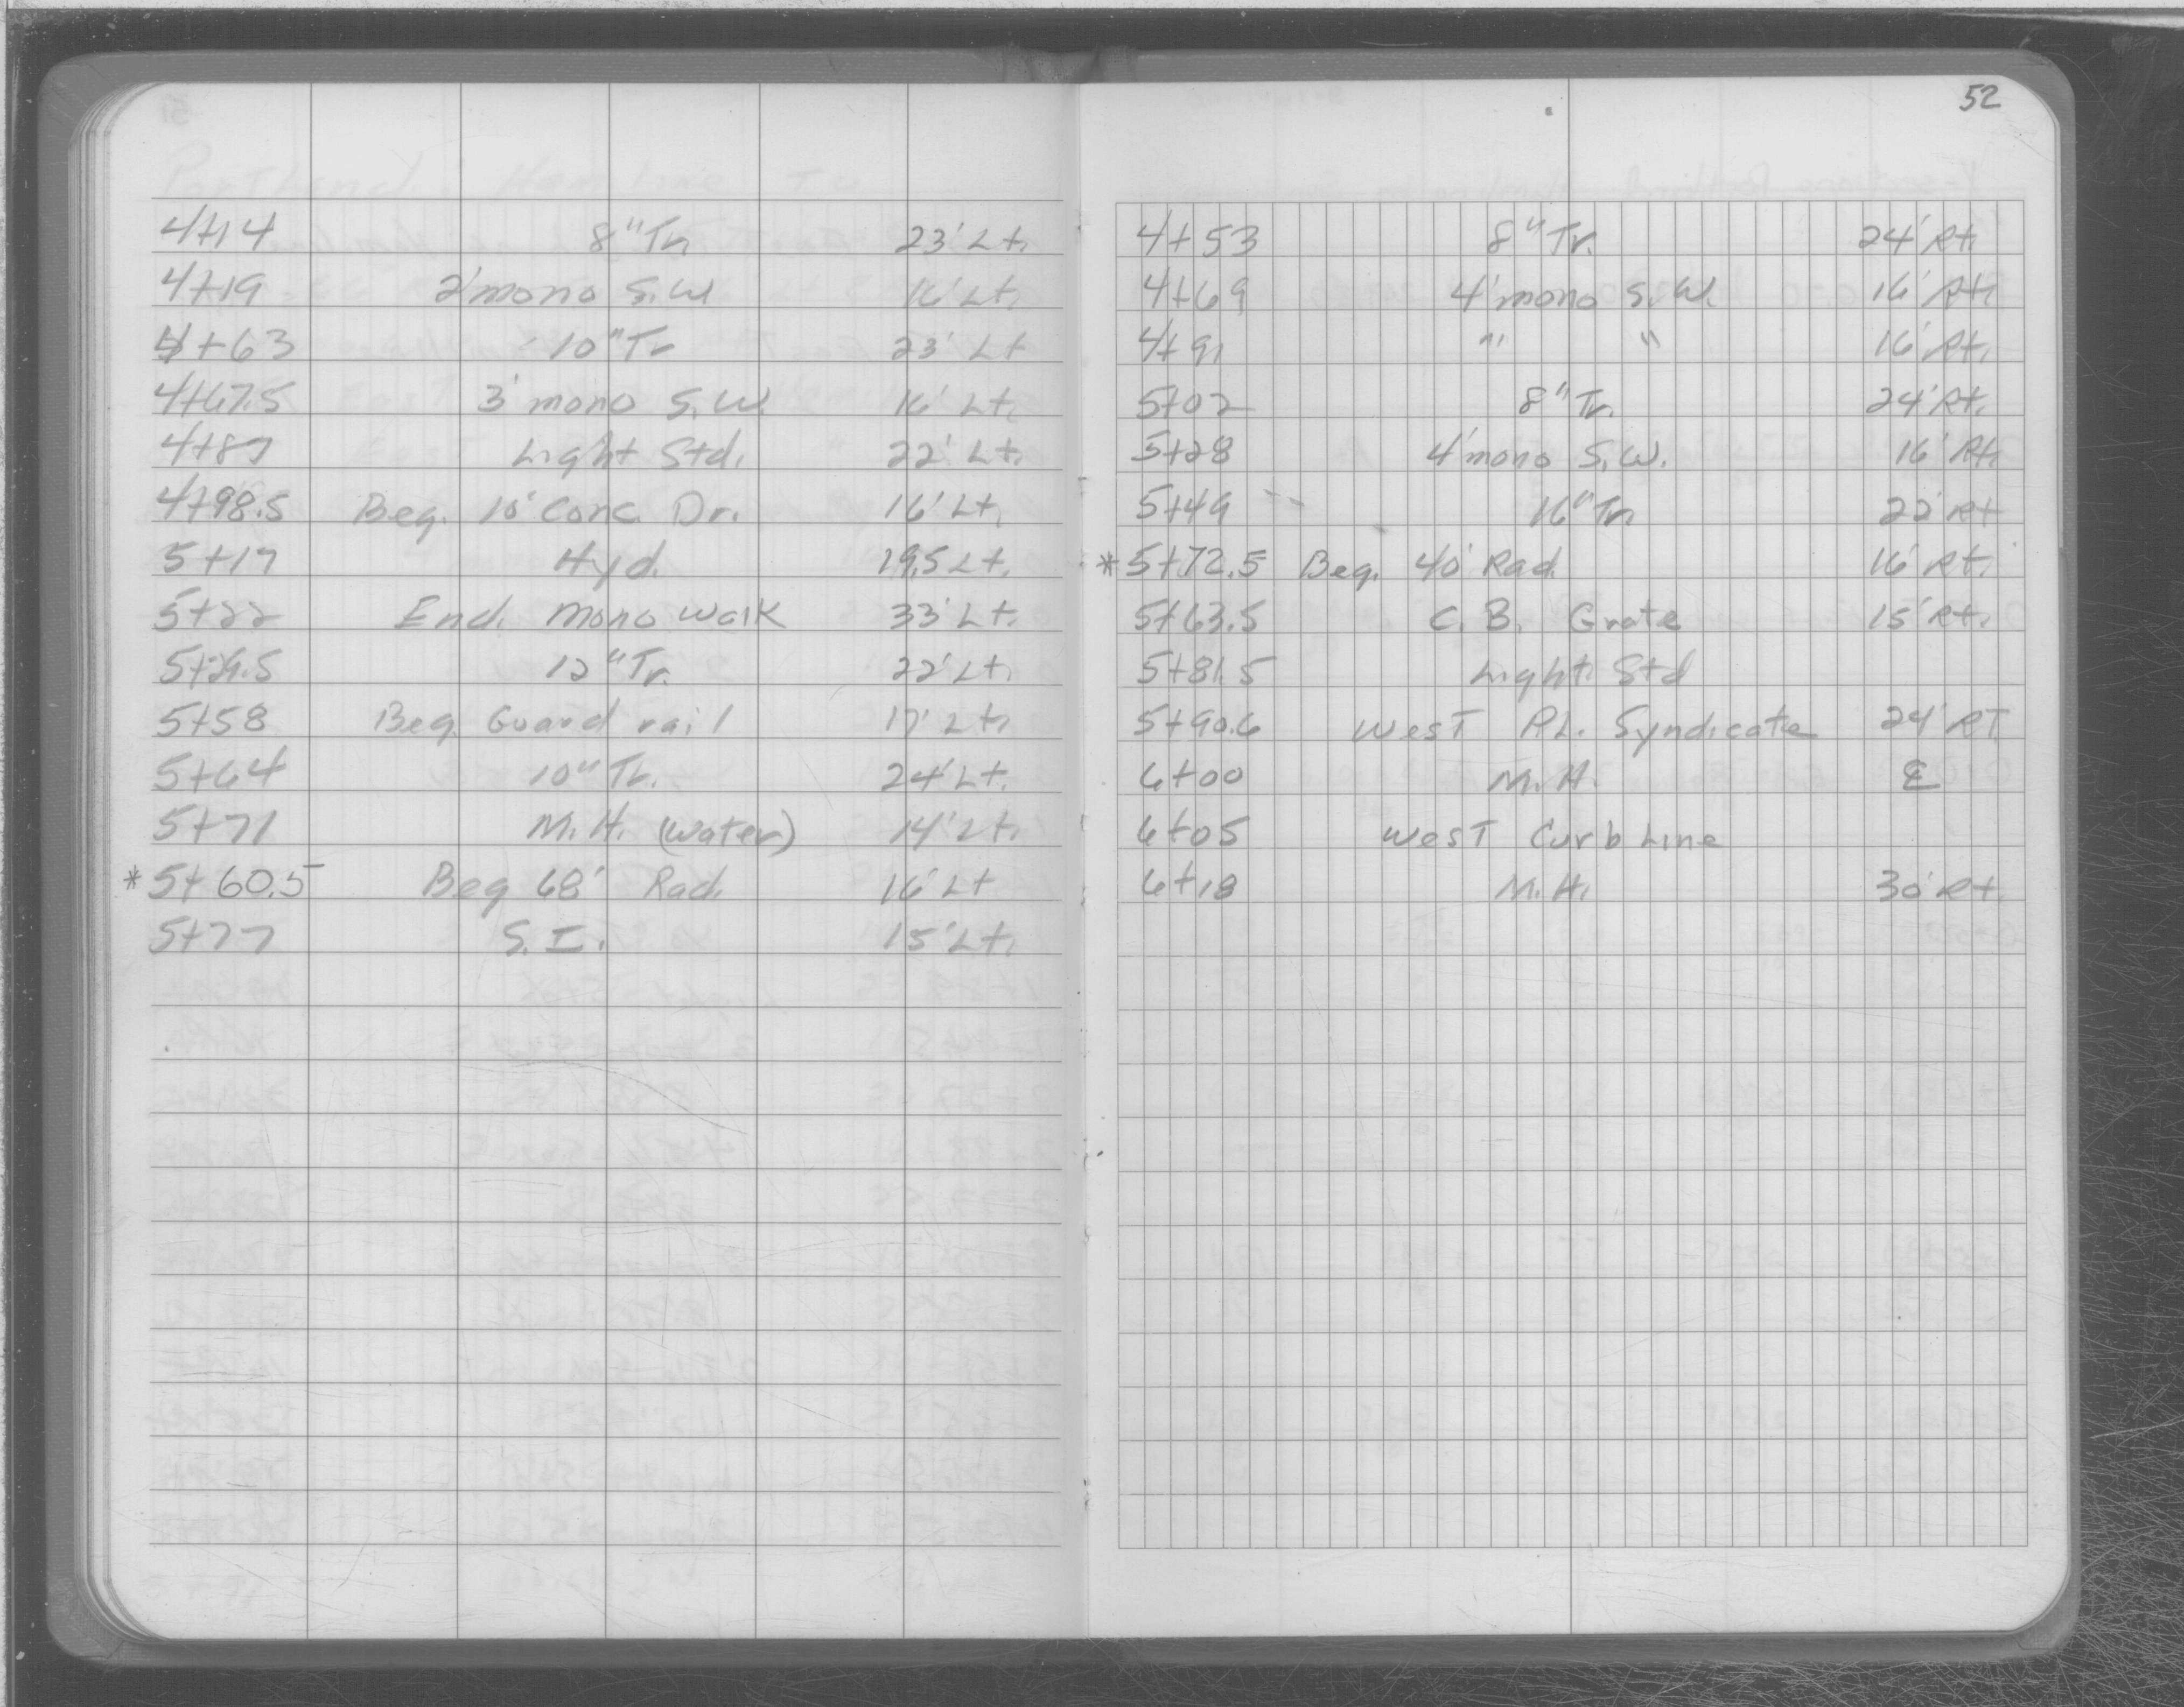 4+14 8" Tr. 23' Lt.
4+19 2' mono S.W 16' Lt.
4+63 10" Tr 23' Lt
4+67.5 3' mono S.W. 16' Lt.
4+87 Light Std. 22' Lt.
4+98.5 Beg. 10' Conc. Dr. 16' Lt.
5+17 Hyd. 19.5 Lt.
5+22 End. Mono Walk 33' Lt.
12" Tr. 22' Lt.
5+58 Beg Guard rail 17' Lt.
5+64 10" Tr. 24' Lt.
5+71 M.H. (water) 14' Lt.
*5+60.5 Beg 68' Rad. 16' Lt
5+77 S.I. 15' Lt.
52
4+53 8" Tr. 24' Rt.
4+69 4' mono S.W. 16' Rt.
4+91 " " 16' Rt.
5+02 8" Tr. 24' Rt.
5+28 4' mono S.W. 16' Rt.
5+49 16" Tr. 22' Rt
*5+72.5 Beg. 40' Rad. 16' Rt.
5+63.5 C.B. Grate 15' Rt.
5+81.5 Light Std
5+90.6 West P.L. Syndicate 24' RT
6+00 M.H. ℄
6+05 West Curb Line
6+18 M.H. 30' Rt.